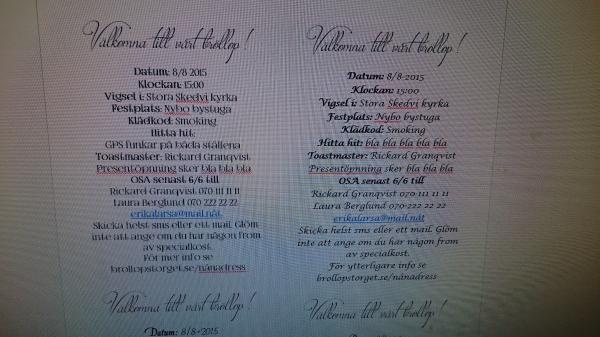 Välkomna till vårt bröllop!
Datum: 8/8 2015
Klockan: 15:00
Vigsel i: Stora Skedvi kyrka
Festplats: Nybo bystuga
Klädkod: Smoking
Hitta hit:
GPS funkar på båda ställena
Toastmaster: Rickard Granqvist
Presentöpnning sker bla bla bla
OSA senast 6/6 till
Rickard Granqvist 070 111 11 11
Laura Berglund 070 222 22 22
erikalarsa@mail.nåt
Skicka helst sms eller ett mail. Glöm
inte att ange om du har någon from
av specialkost.
För mer info se
brollopstorget.se/nånadress
Välkomna till vårt bröllop!
Datum: 8/8-2015
Välkomna till vårt bröllop!
Datum: 8/8-2015
Klockan: 15:00
Vigsel i: Stora Skedvi kyrka
Festplats: Nybo bystuga
Klädkod: Smoking
Hitta hit: bla bla bla bla bla
Toastmaster: Rickard Granqvist
Presentöpnning sker bla bla bla
OSA senast 6/6 till
Rickard Granqvist 070-111 11 11
Laura Berglund 070-222 22 22
erikalarsa@mail.nåt
Skicka helst sms eller ett mail. Glöm
inte att ange om du har någon from
av specialkost.
För ytterligare info se
brollopstorget.se/nånadress
Välkomna till vårt bröllop!